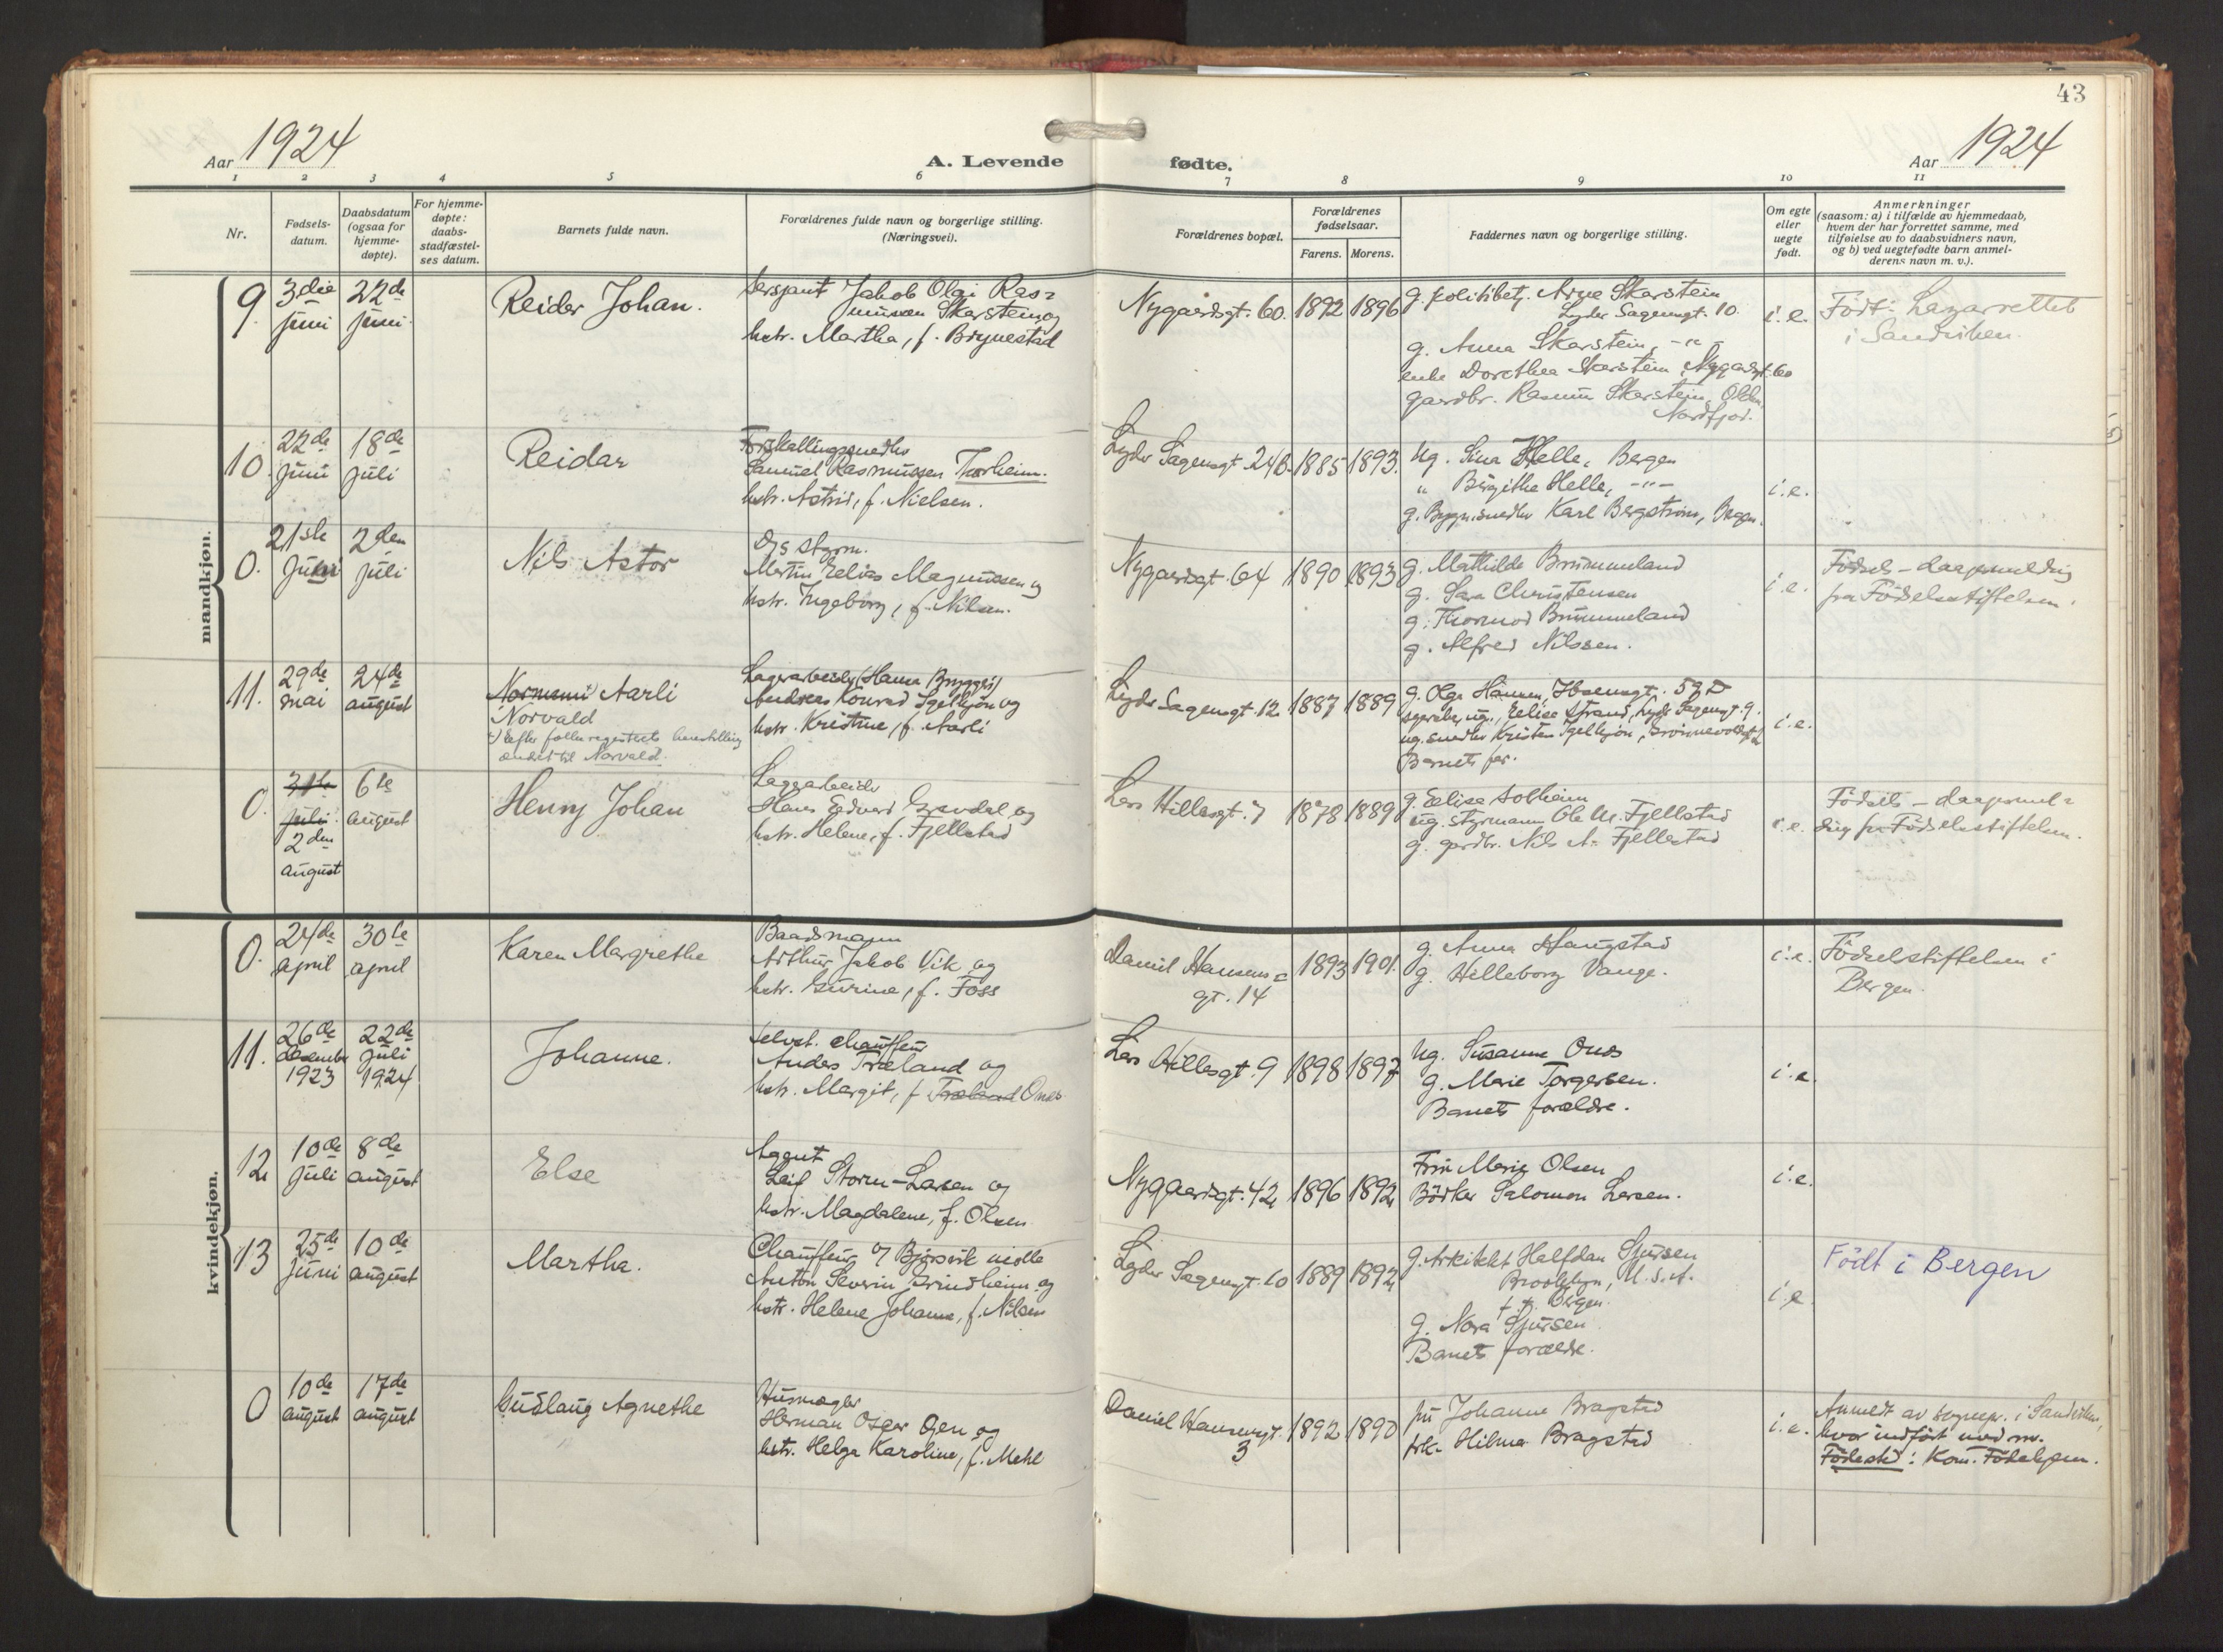 43
Aar 1924
A. Levende fødte.
Aar 1924
1 2 3 4 5 6 7 8 9 10 11
Nr.
Fødsels-
datum.
Daabsdatum
(ogsaa for
hjemme-
døpte).
For hjemme-
døpte:
daabs-
stadfæstel-
ses datum.
Barnets fulde navn.
Forældrenes fulde navn og borgerlige stilling.
(Næringsvei).
Forældrenes bopæl.
Forældrenes
fødselsaar.
Farens. Morens.
Faddernes navn og borgerlige stilling.
Om egte
eller
uegte
født.
Anmerkninger
(saasom: a) i tilfælde av hjemmedaab,
hvem der har forrettet samme, med
tilføielse av to daabsvidners navn,
og b) ved uegtefødte barn anmel-
derens navn m. v.).
mandkjøn.
9.
3die
juni
22de
juni
Reidar Johan.
Sersjant Jakob Olai Ras=
mussen Skarstein og
hstr. Martha, f. Brynestad
Nygaardsgt. 60.
1892
1896
g. politibetj. Arne Skarstein
Lyder Sagensgt. 10.
g. Anna Skarstein, -"-
enke Dorothea Skarstein, Nygaardsgt. 60
gaardbr. Rasmus Skarstein, Olden
Nordfjord.
i. e.
Født: Lazarettet
i Sandviken.
10.
22de
juni
18de
juli
Reidar
Forskallingssnedker
Samuel Rasmussen Thorheim.
hstr. Astrid, f. Nielsen.
Lyder Sagensgt. 24B.
1885
1893.
Ug. Sina Helle, Bergen
" Bergithe Helle, -"-
g. Bygn.snedker Karl Bergstrøm, Bergen.
i. e.
0.
21ste
juni
2den
juli
Nils Astor
D/S styrm.
Martin Elias Magnussen og
hstr. Ingeborg, f. Nilsen.
Nygaardsgt. 64
1890
1893
g. Mathilde Brummeland
g. Sara Christensen
g. Thormod Brummeland
g. Alfred Nilssen.
i. e.
Fødsels-daapsmelding
fra Fødselsstiftelsen.
11.
29de
mai
24de
august
Normann Aarli
Norvald
+) Efter folkeregisterets henstilling
endret til Norvald.
Lagerarbeider (Hansa Bryggeri)
Andreas Konrad Igelkjøn og
hstr. Kristine, f. Aarli
Lyder Sagensgt. 12
1887
1889
g. Olga Hansen, Ibsensgt. 59D
ug., Elise Strand, Lyder Sagensgt. 9.
ug. snedker Kristen Igelkjøn,
Barnets far.
i. e.
0.
31te
juli.
2den
august
6te
august
Henry Johan
Lagerarbeider
Hans Edvard Gravdal og
hstr. Helene, f. Fjellestad
Lars Hillesgt. 7
1878
1889
g. Elise Solheim
ug. styrmann Ole M. Fjellestad
g. gardbr. Nils A. Fjellestad
i. e.
Fødsels-daapsmel=
ding fra Fødselsstiftelsen.
kvindekjøn.
0.
24de
april
30te
april
Karen Margrethe
Baadsmann
Arthur Jakob Vik og
hstr. Gurine, f. Foss
Daniel Hansens=
gt. 14
1893
1901.
g. Anna Haugstad
g. Hilleborg Vange.
i. e.
Fødselsstiftelsen i
Bergen.
11.
26de
desember
1923
22de
juli
1924
Johanne.
Selvst. chauffeur
Anders Træland og
hstr. Margit, f. Træland Onas
Lars Hillesgt. 9
1898
1897
Ug. Susanne Onas
g. Marie Torgersen.
Barnets forældre.
i. e.
12
10de
juli
8de
august
Else
Agent
Leif Storm-Larsen og
hstr. Magdalene, f. Olsen
Nygaardsgt. 42
1896
1892
Fru Marie Olsen
Bødker Salomon Larsen.
i. e.
13
25de
juni
10de
august
Martha.
Chauffeur v/ Bjørsvik mølle
Anton Severin Grindheim og
hstr. Helene Johanne, f. Nilsen
Lyder Sagensgt. 10
1889
1892
g. Arkitekt Halfdan Sjursen
Brooklyn, U.S.A.
f. t. Bergen.
g. Nora Sjursen
Barnets forældre.
i. e.
Født i Bergen
0
10de
august
17de
august
Gudlaug Agnethe
Husmægler
Herman Oscar Øen og
hstr. Helga Karoline, f. Mehl
Daniel Hansensgt.
3
1892
1890
fru Johanne Bragstad
frk. Hilma Bragstad
i. e.
Anmeldt av sognepr. i Sandviken,
hvor indført uten nr.
Fødested: Kom. Fødehjem.